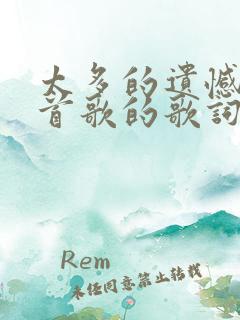 太多的遺憾
首歌的歌詞
Rem
未经同意禁止转载